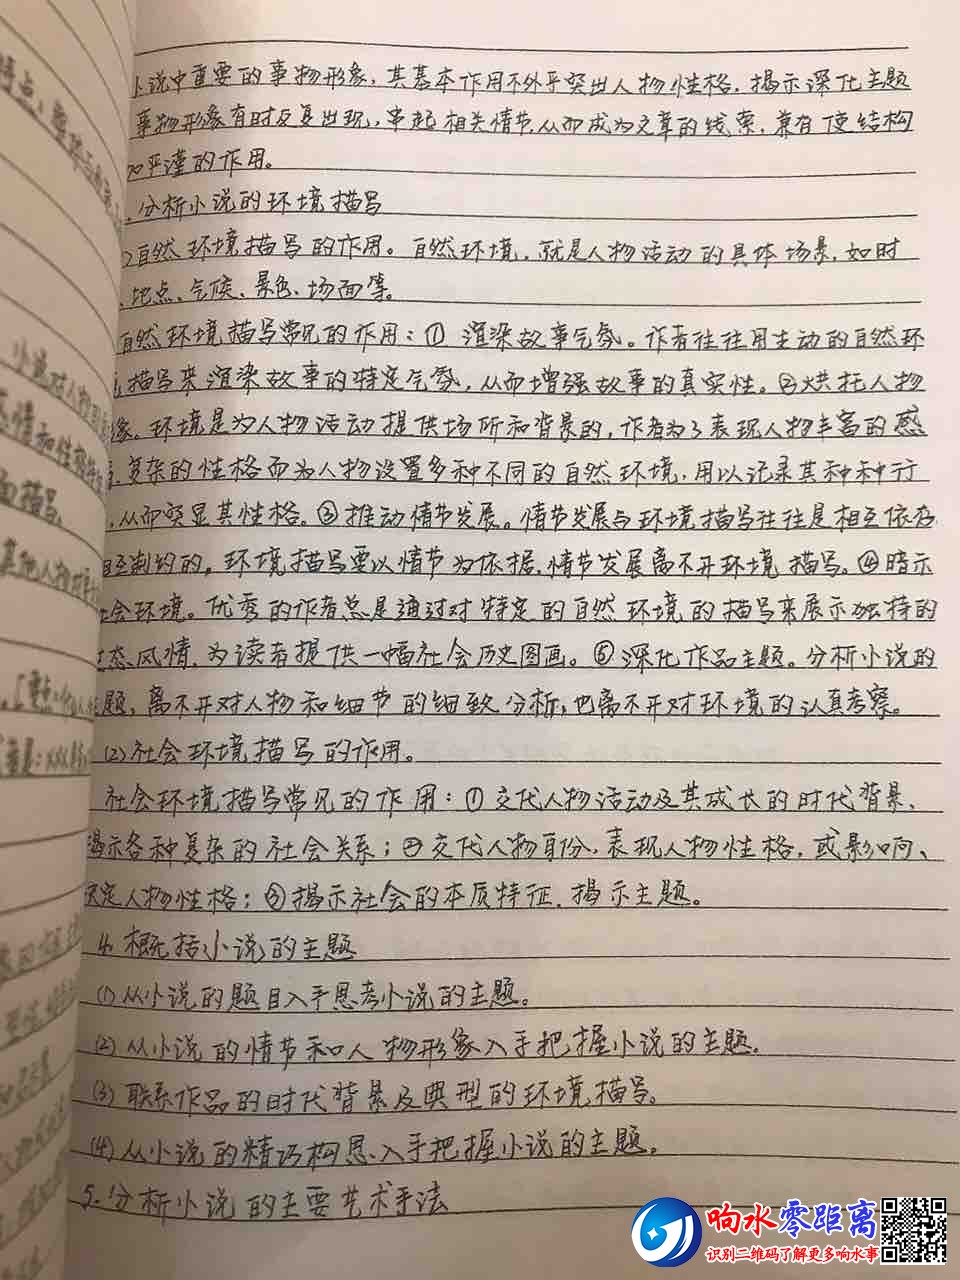 小说中重要的事物形象，其基本作用不外乎突出人物性格，揭示深化主题
事物形象有时反复出现，串起相关情节，从而成为文章的线索，兼有使结构
加严谨的作用。
.分析小说的环境描写
)自然环境描写的作用。自然环境，就是人物活动的具体场景，如时
、地点、气候、景色、场面等。
自然环境描写常见的作用：① 渲染故事气氛。作者往往用生动的自然环
描写来渲染故事的特定气氛，从而增强故事的真实性。②烘托人物
象。环境是为人物活动提供场所和背景的，作者为了表现人物丰富的感
复杂的性格而为人物设置多种不同的自然环境，用以记录其种种行
，从而突显其性格。③推动情节发展。情节发展与环境描写往往是相互依存
相互制约的。环境描写要以情节为依据，情节发展离不开环境描写。④暗示
社会环境。优秀的作者总是通过对特定的自然环境的描写来展示独特的
态风情，为读者提供一幅社会历史图画。⑤深化作品主题。分析小说的
主题，离不开对人物和细节的细致分析，也离不开对环境的认真考察。
(2)社会环境描写的作用。
社会环境描写常见的作用：①交代人物活动及其成长的时代背景，
揭示各种复杂的社会关系；②交代人物身份，表现人物性格，或影响、
决定人物性格；③揭示社会的本质特征，揭示主题。
4.概括小说的主题
(1)从小说的题目入手思考小说的主题。
(2)从小说的情节和人物形象入手把握小说的主题。
(3)联系作品的时代背景及典型的环境描写。
(4)从小说的精巧构思入手把握小说的主题。
5.分析小说的主要艺术手法
响水零距离
识别二维码了解更多响水事